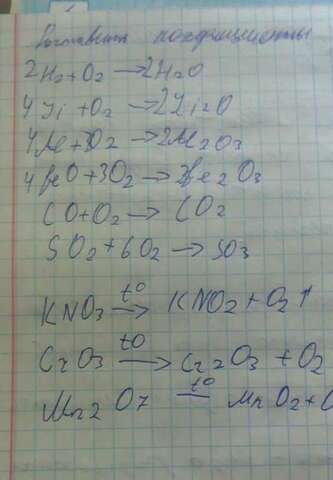 Расставить коэффициенты
2H2+O2 → 2H2O
4Li+O2 → 2Li2O
4Al+3O2 → 2Al2O3
4FeO+3O2 → 2Fe2O3
CO+O2 → CO2
SO2+6O2 → SO3
KNO3 t0 → KNO2+O2↑
CrO3 t0 → Cr2O3 + O2
Mn2O7 t0 — MnO2+